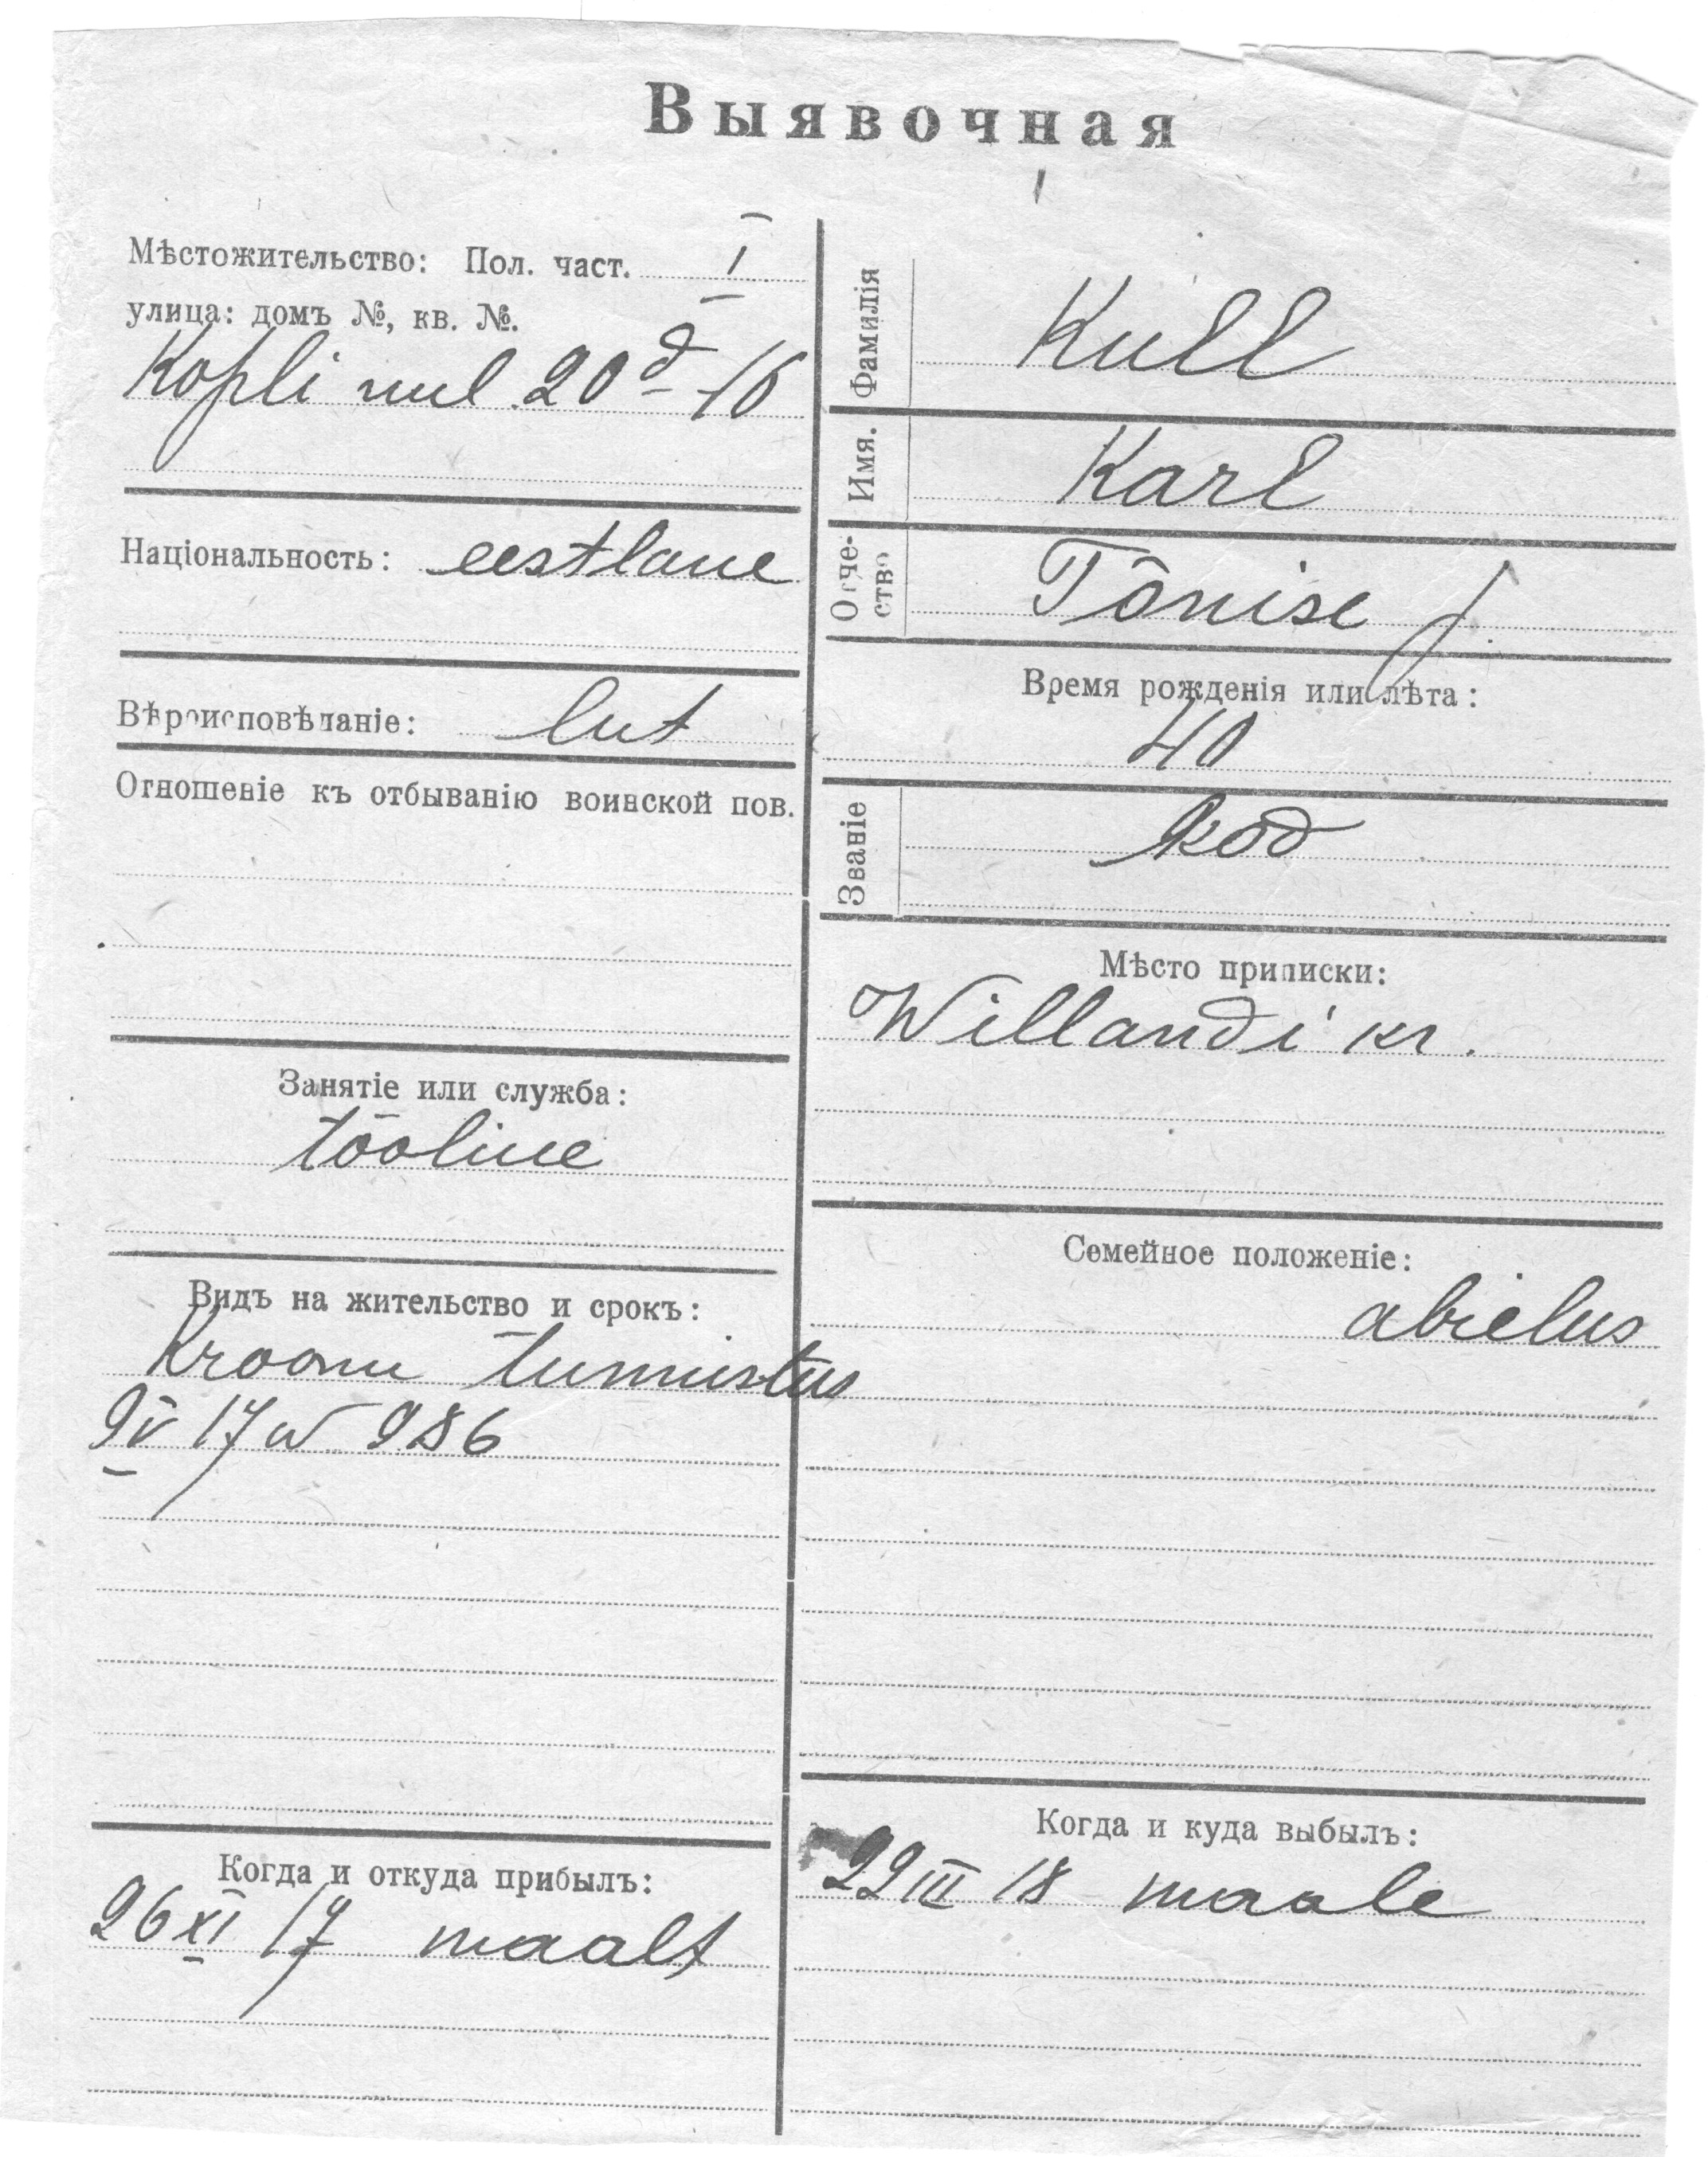 Выявочная
Мѣстожительство: Пол. част. I
улица: домъ №, кв. №.
Kopli uul 20ᵈ-16
Національность: eestlane
Вѣроисповѣданіе: lut
Отношеніе къ отбыванію воинской пов.
Занятіе или служба:
tööline
Видъ на жительство и срокъ:
Kroonu tunnistus
9 V 17 w 986
Когда и откуда прибылъ:
26 XI 17 maalt
Фамилія Kull
Имя. Karl
Отче-
ство Tõnise p.
Время рожденія или лѣта:
40
Званіе kod
Мѣсто приписки:
Willandi kr.
Семейное положеніе:
abielus
Когда и куда выбылъ:
22 III 18 maale